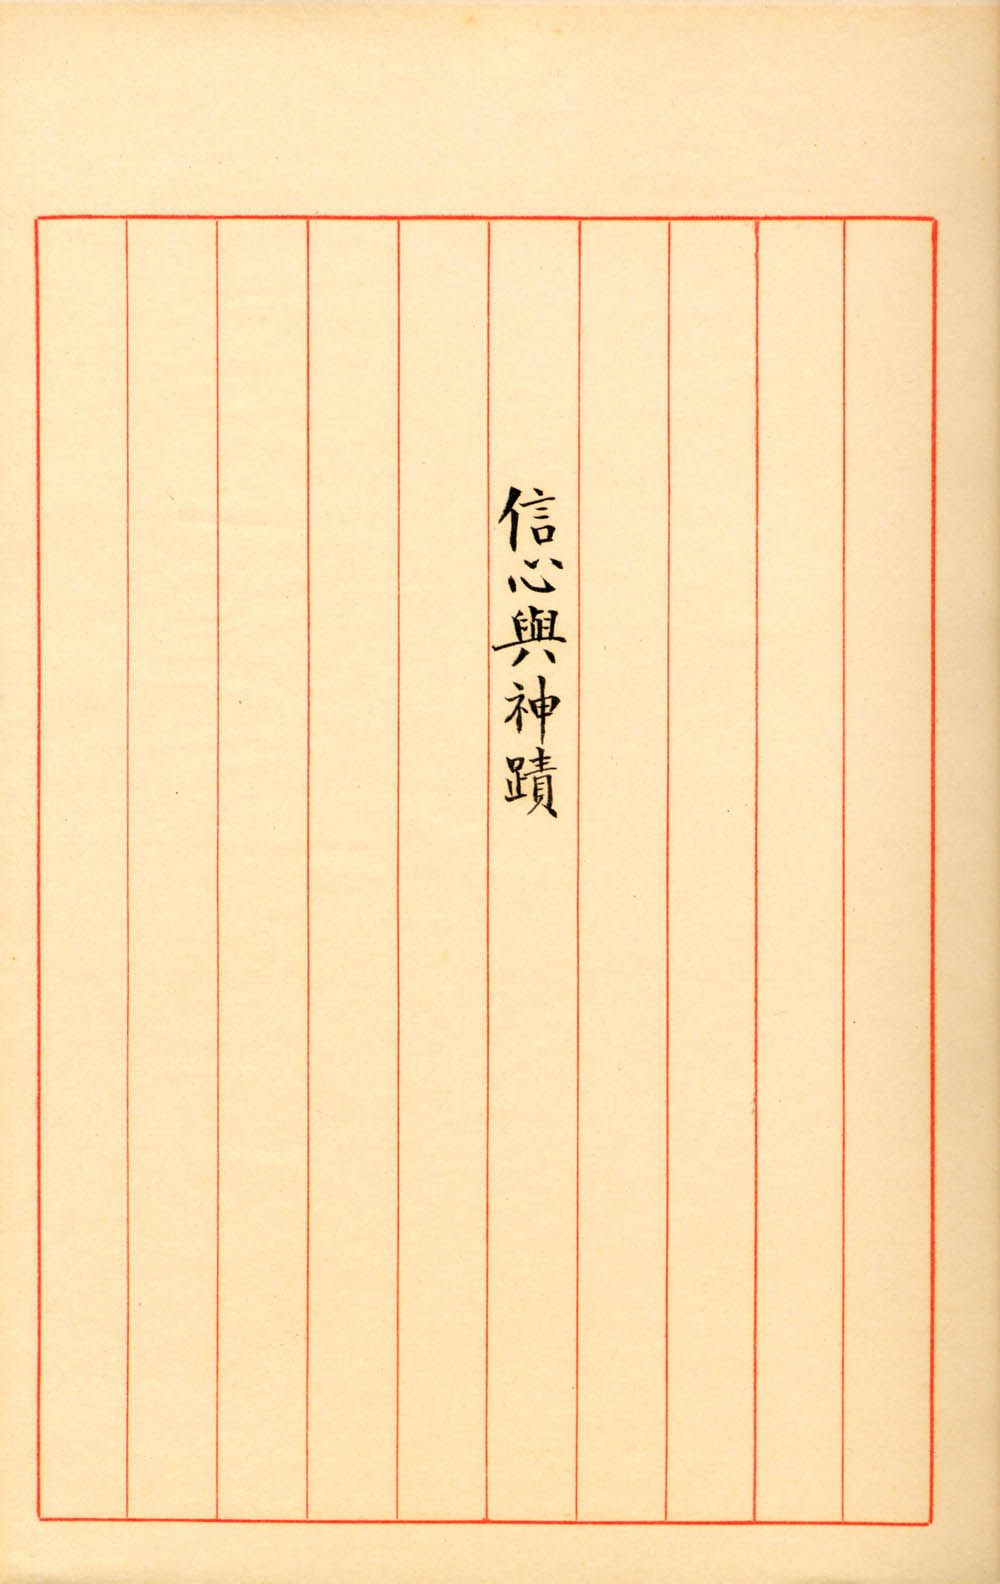 信心與神蹟